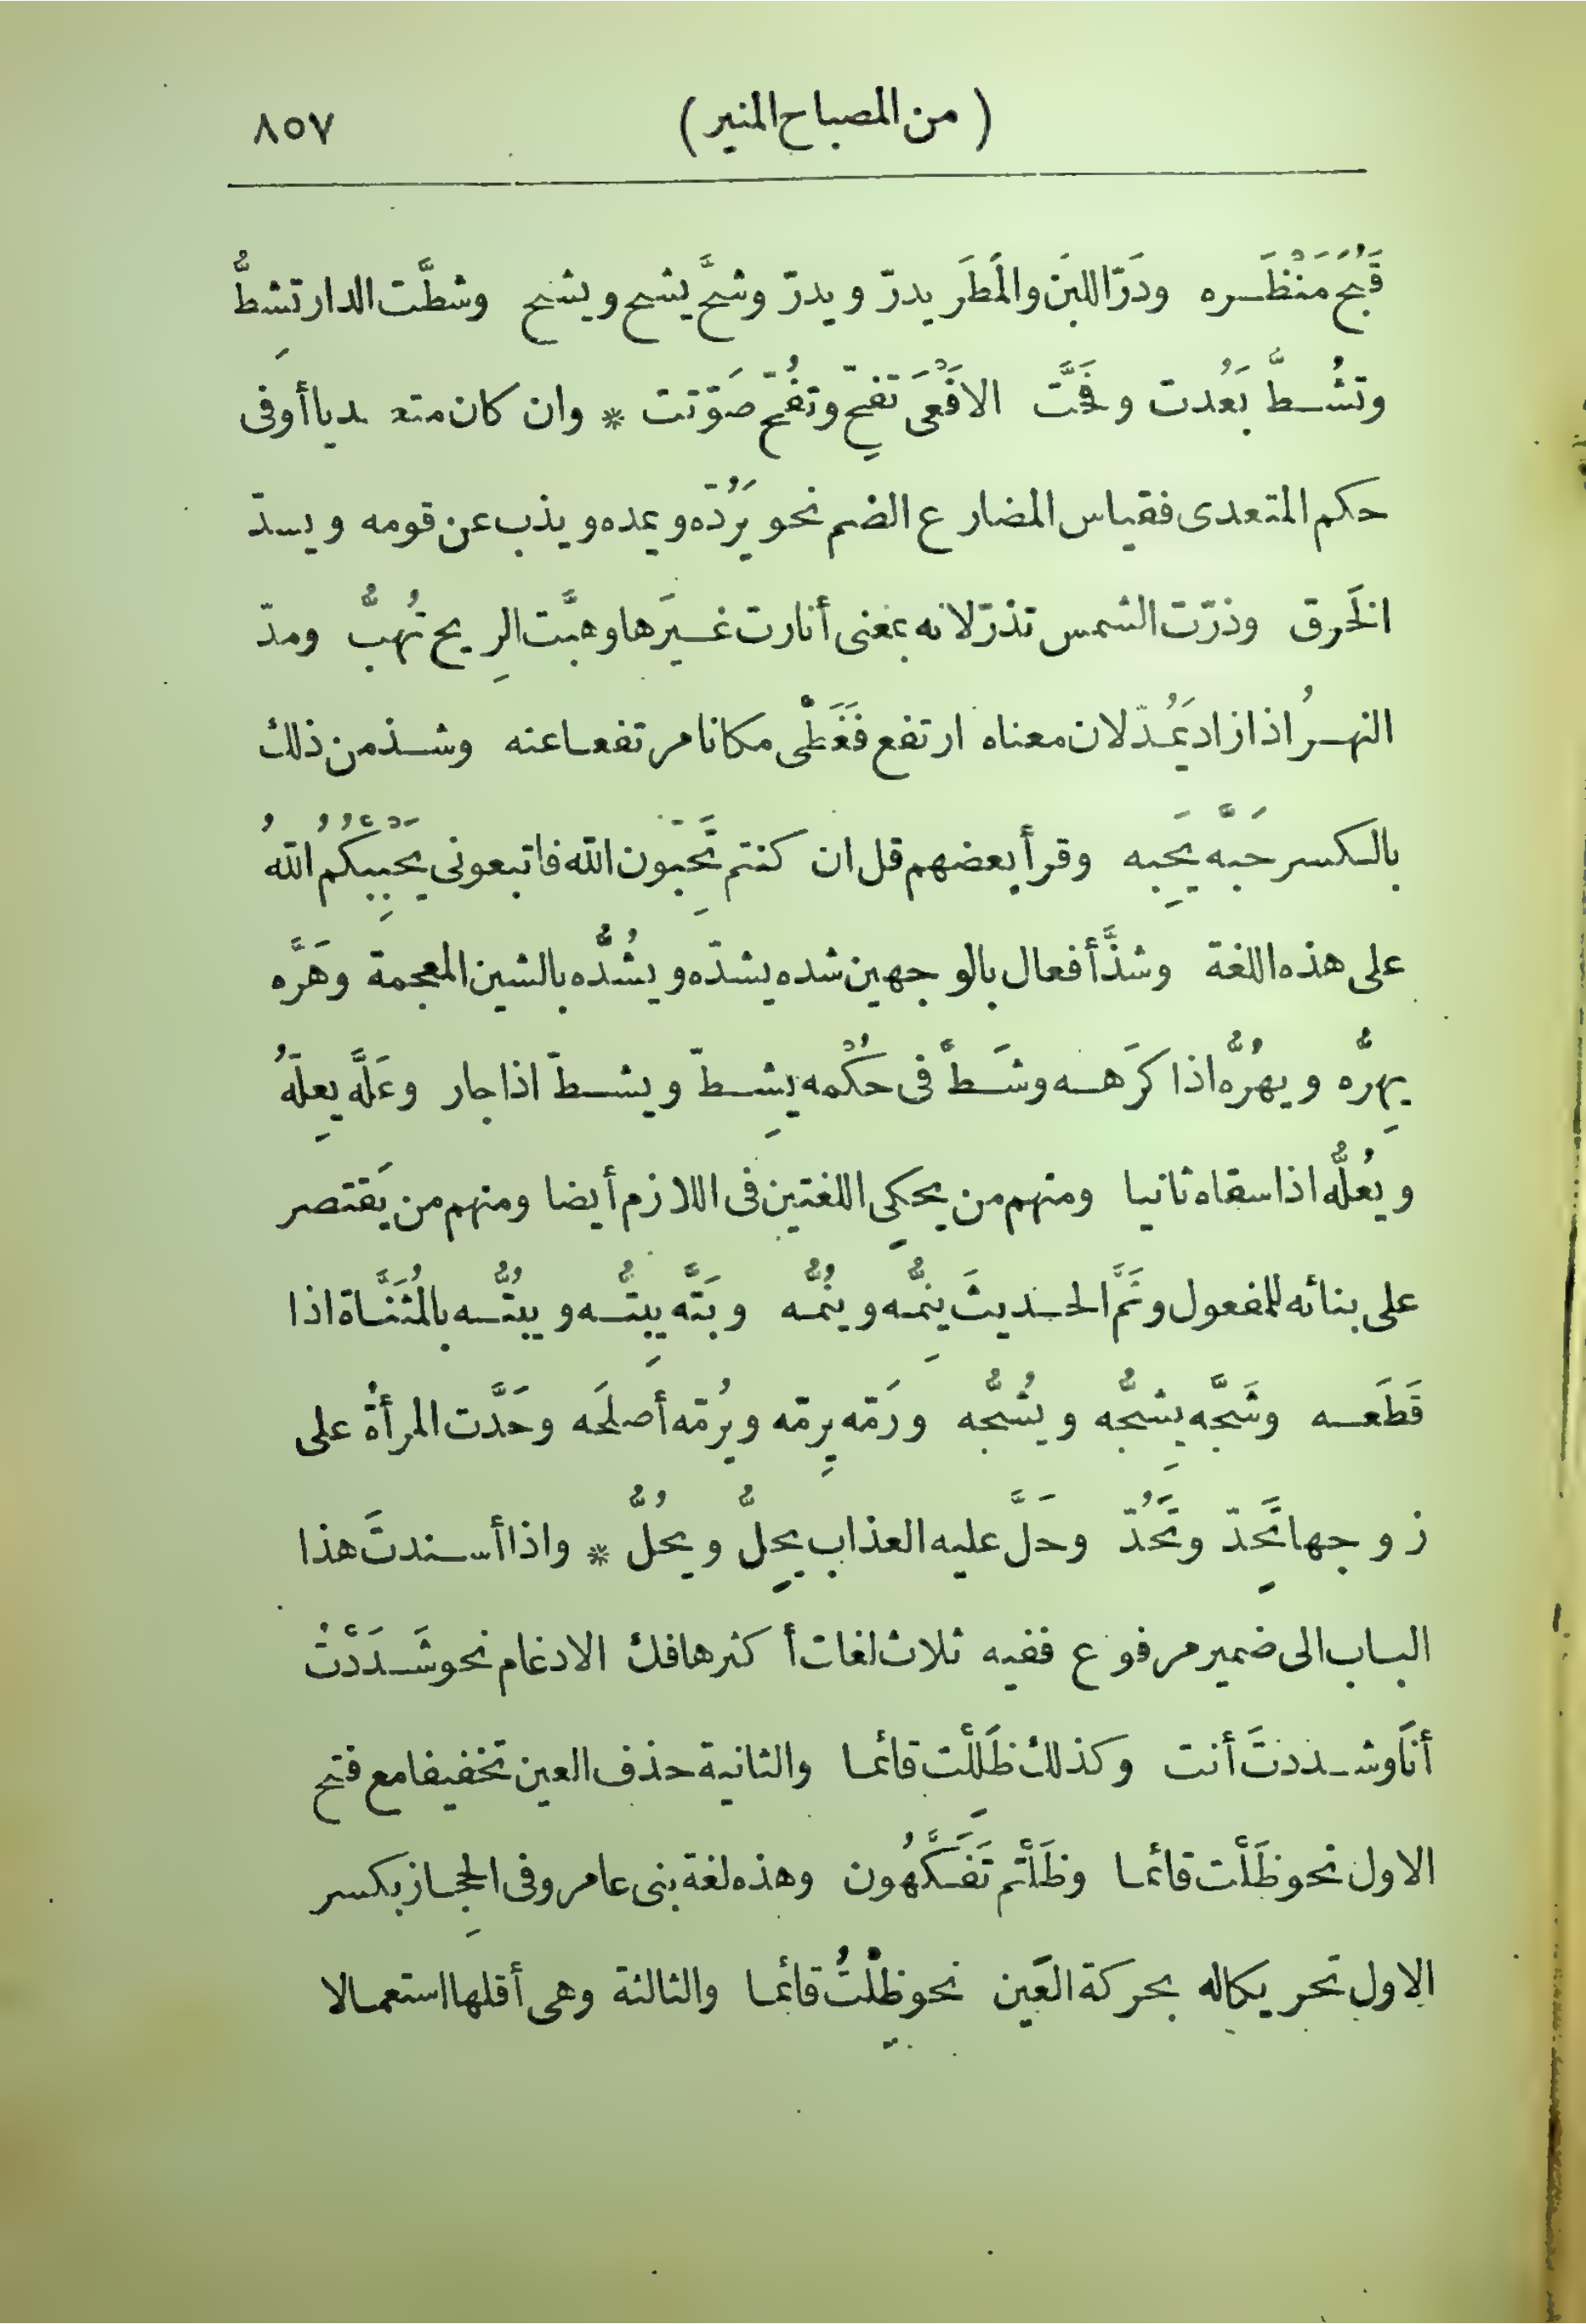 ( من المصباح المنير ) ٨٥٧
قَبُحَ مَنْظَره ودَرّ اللبَن والمَطَر يدرّ ويدرّ وشحَّ يشح ويشح وشطَّت الدار تشِطُّ
وتشُطُّ بَعُدت وفَحَّت الافْعَى تفِحّ وتفُحّ صَوّتت * وان كان متعديا أو فى
حكم المتعدى فقياس المضارع الضم نحو يَرُدّه ويمده ويذب عن قومه ويسدّ
الخَرق وذرّت الشمس تذرّ لانه بمعنى أنارت غيَرها وهبَّت الرِيح تهُبُّ ومدّ
النهرُ اذا زاد يَمُدّ لان معناه ارتفع فَغَطَّى مكانا مرتفعا عنه وشذ من ذلك
بالكسر حَبَّه يَحِبه وقرأ بعضهم قل ان كنتم تَحِبّون الله فاتبعونى يَحْبِبْكُمُ اللهُ
على هذه اللغة وشذَّ أفعال بالوجهين شده يشدّه ويشُدُّه بالشين المعجمة وهَرَّه
يهِرُّه ويهُرُّه اذا كَرَهه وشَطَّ فى حكُمْه يشِطّ ويشطّ اذا جار وعَلَّه يعِلّهُ
ويعُلُّه اذا سقاه ثانيا ومنهم من يحكِى اللغتين فى اللازم أيضا ومنهم من يَقتصر
على بنائه للمفعول ونَمَّ الحديثَ ينِمُّه وينُمُّه وبَتَّه يبِتُّه ويبُتُّه بالمُثَنَّاة اذا
قَطَعه وشَجَّه يشِجُّه ويشُجُّه ورَمّه يرِمّه ويرُمّه أصلحَه وحَدَّت المرأةُ على
زوجها تَحِدّ وتَحُدّ وحَلَّ عليه العذاب يحِلُّ ويحُلُّ * واذا أسندتَ هذا
الباب الى ضمير مرفوع ففيه ثلاث لغات أكثرها فك الادغام نحو شَدَدْتُ
أنَا وشددتَ أنت وكذلك ظَلِلْت قائما والثانية حذف العين تخفيفا مع فتح
الاول نحو ظَلْت قائما وظَلْتم تَفَكَّهُون وهذه لغة بنى عامر وفى الحِجاز بكسر
الاول تحريكاله بحركة العَين نحو ظِلْتُ قائما والثالثة وهى أقلها استعمالا